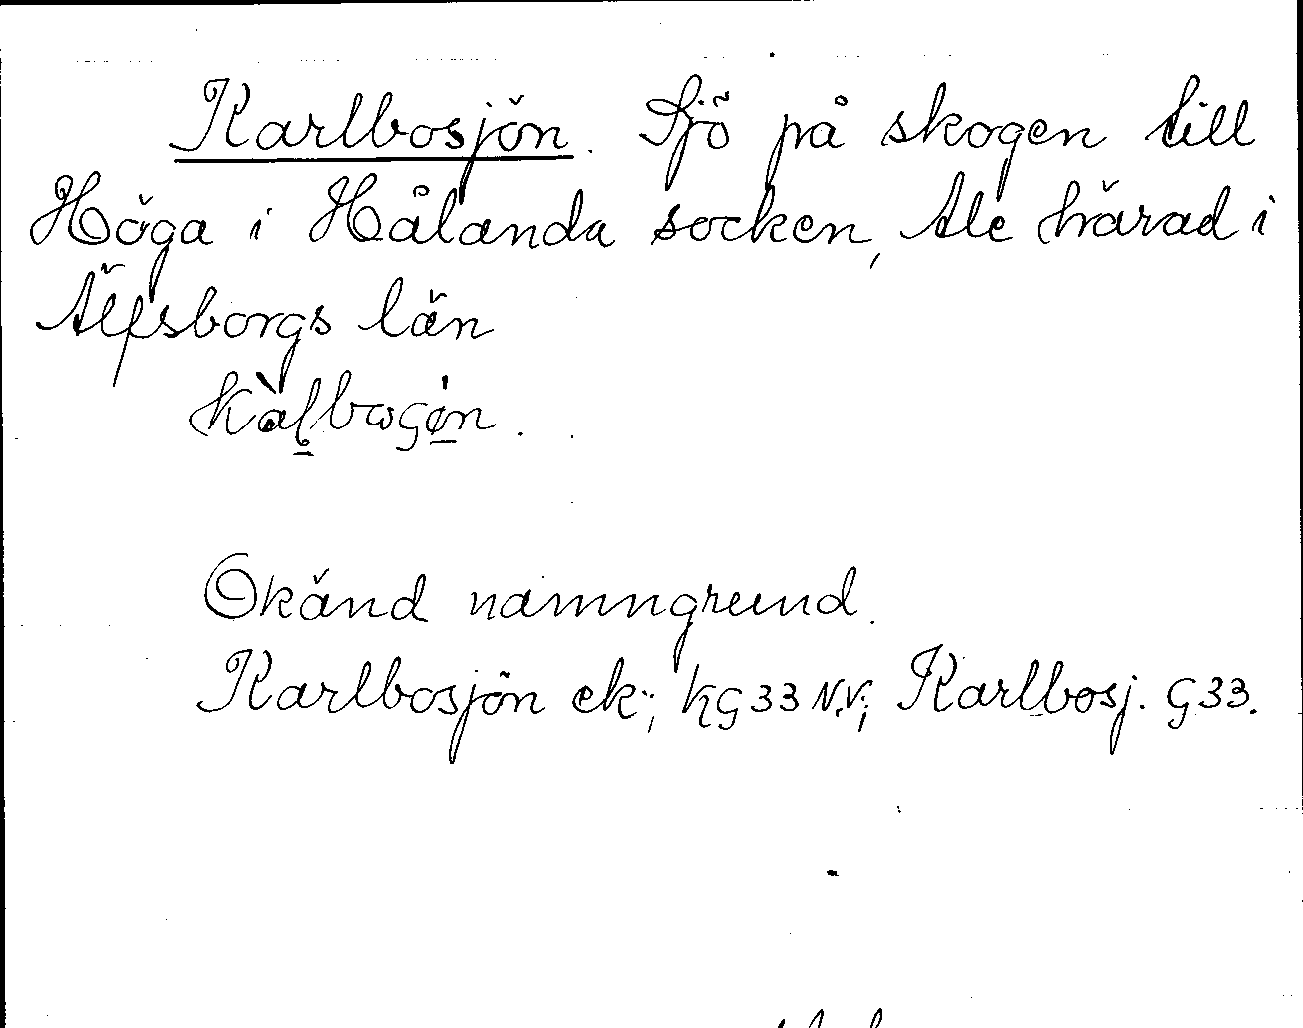 Karlbosjön. Sjö på skogen till
Höga i Hålanda socken, Ale härad i
Älfsborgs län
Okänd namngrund.
Karlbosjön ek.; KG33 N.V.; Karlbosj. G33.